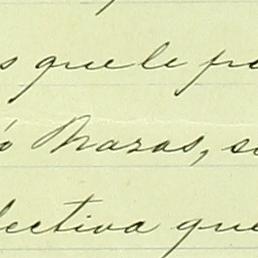 s que le pa
ó Mazas, su
lectiva que